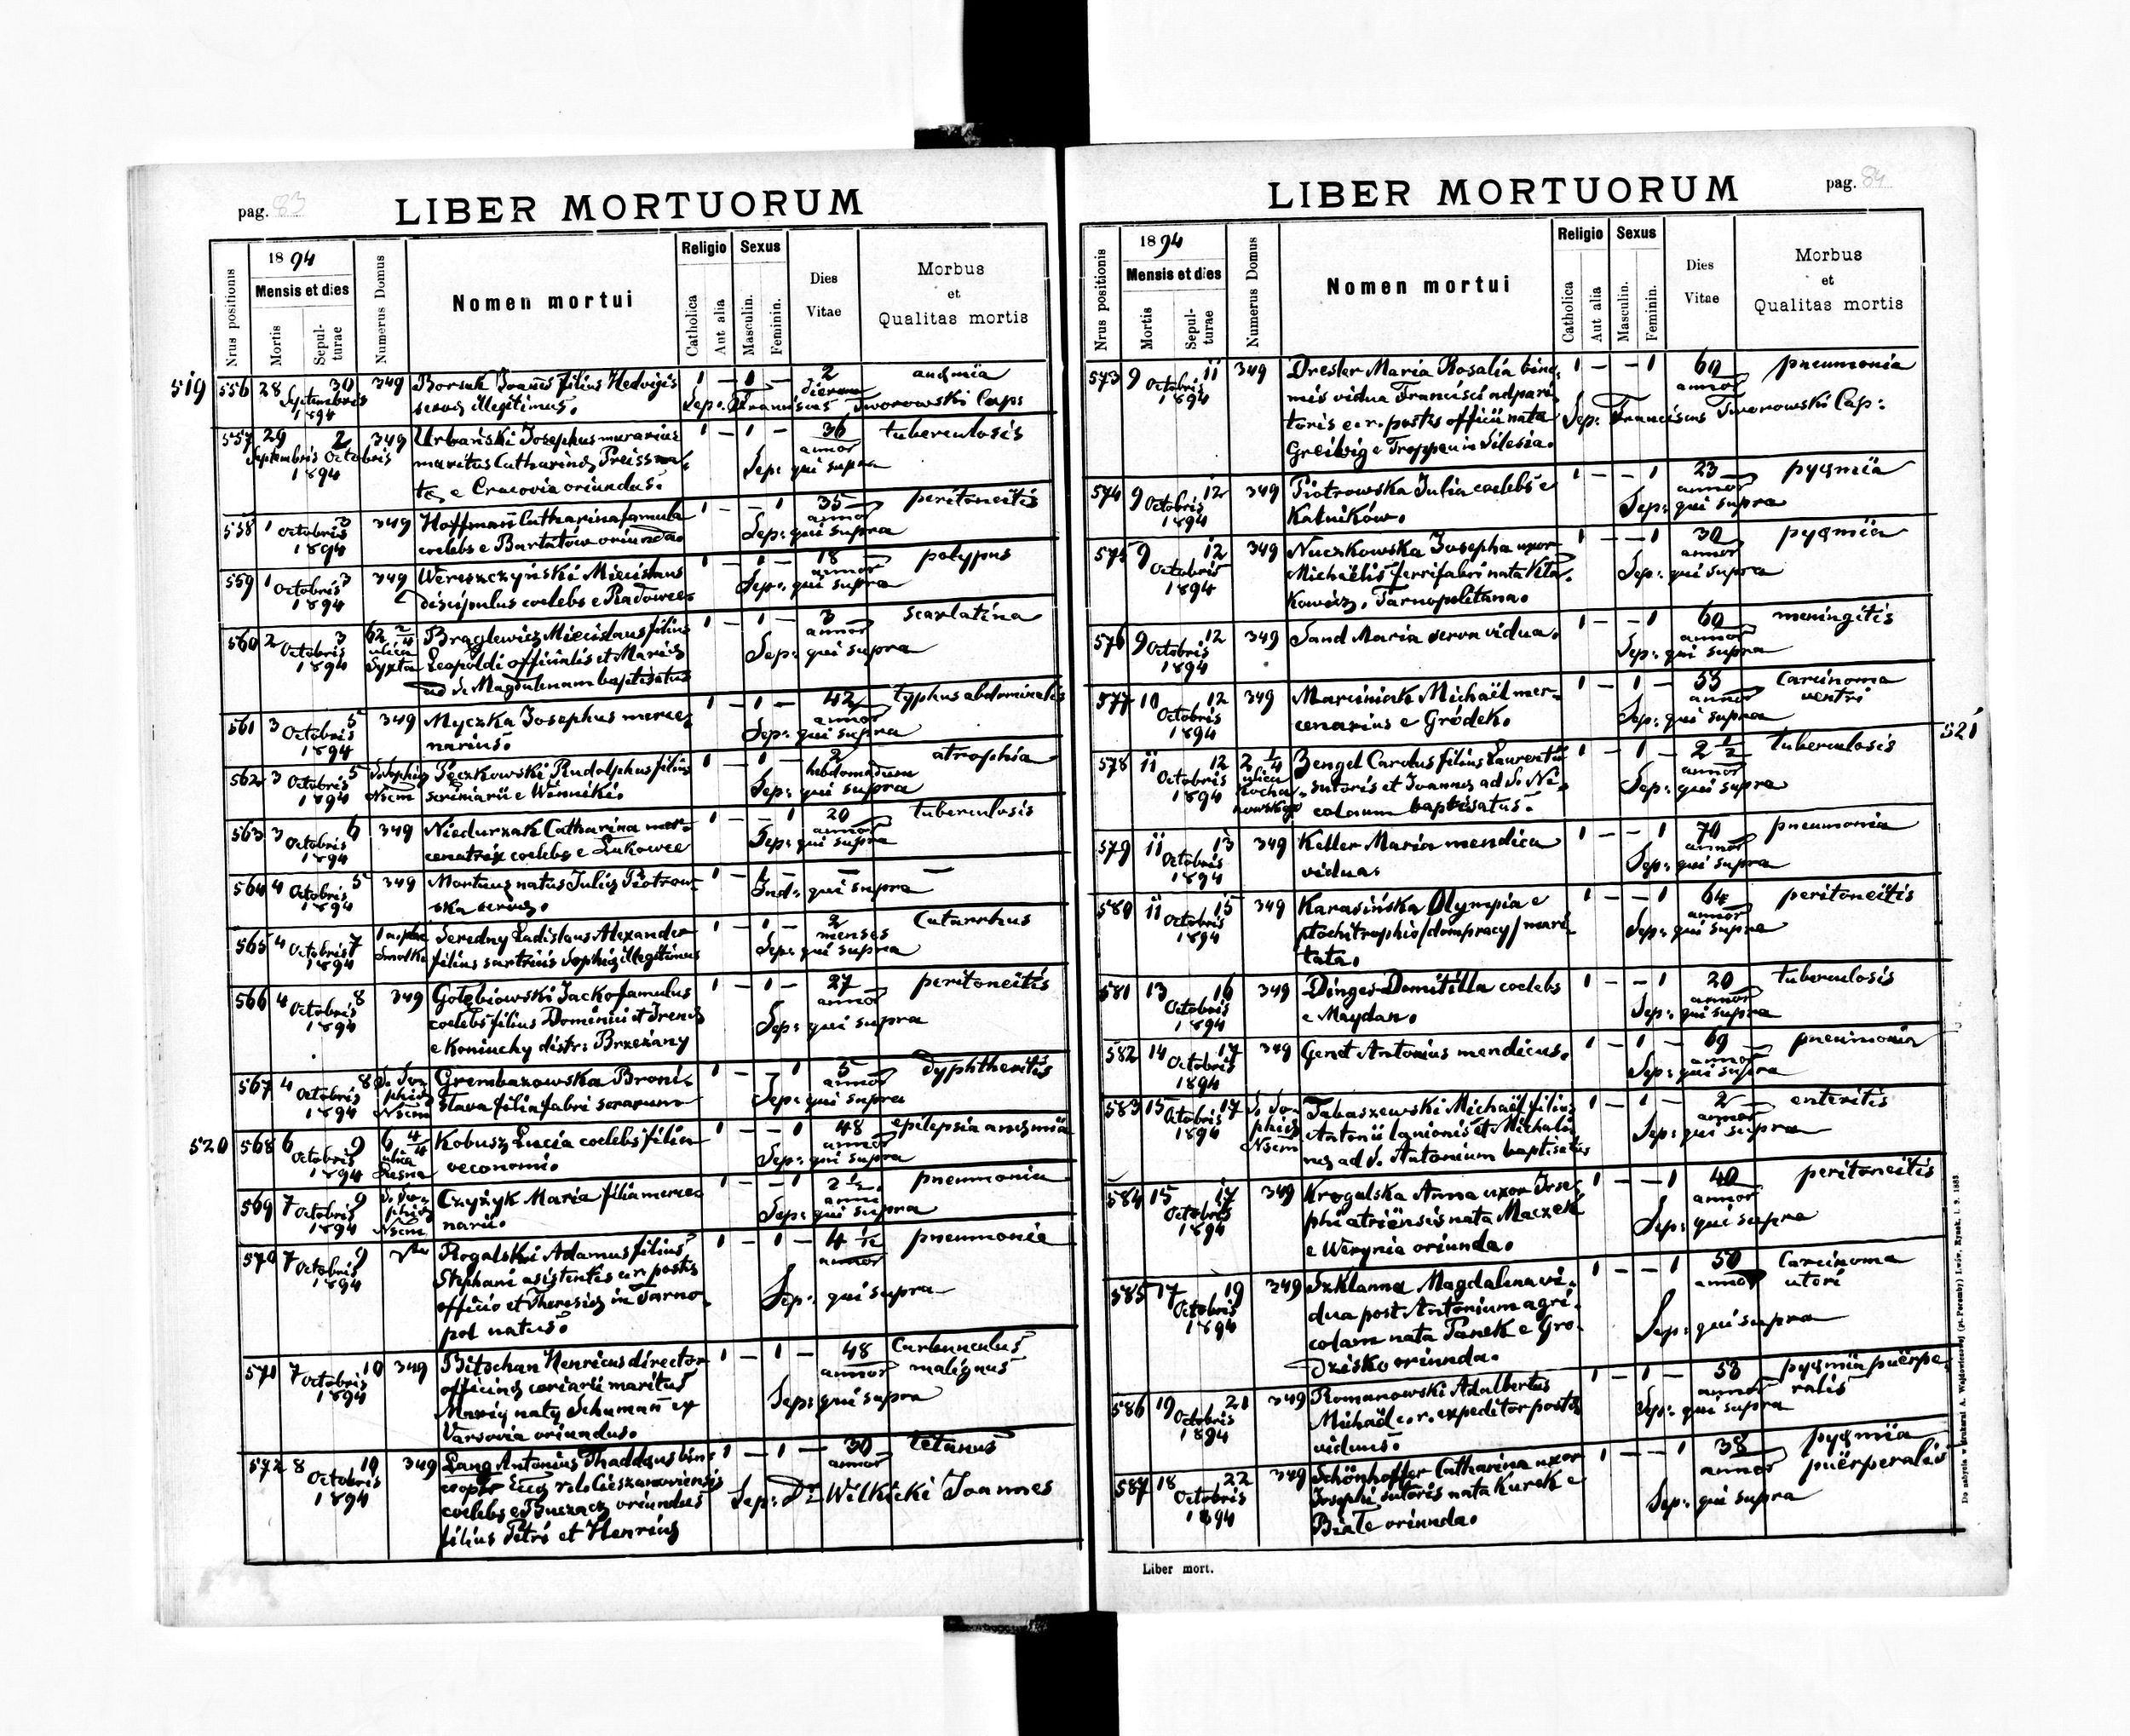 pag. 83
LIBER MORTUORUM
Nrus positionis
1894
Mensis et dies
Mortis
Sepulturae
Numerus Domus
Nomen mortui
Religio
Catholica
Aut alia
Sexus
Masculin.
Feminin.
Dies Vitae
Morbus
et
Qualitas mortis
519
556 28 30 Septembris 1894 349 Borsuk Joañes filius Hedvigis 1 – 1 – 2 dierum anæmia
servæ illegitimus. Sep: Franciscus Tworowski Cap:
557 29 Septembris 2 Octobris 1894 349 Urbański Josephus murarius 1 – 1 – 36 annor tuberculosis
maritus Catharinæ Sep: qui supra
e Cracovia oriundus.
558 1 3 Octobris 1894 349 Hoffmañ Catharina famula 1 – – 1 35 annor peritoneitis
coelebs e Bartatów oriunda. Sep: qui supra
559 1 3 Octobris 1894 349 Wereszczyński Miecislaus 1 – 1 – 18 annor polypus
discipulus coelebs e Sep: qui supra
560 2 3 Octobris 1894 62 2/4 ulica Syxta Braglewicz Miecislaus filius 1 – 1 – 3 annor scarlatina
Leopoldi officialis et Mariæ Sep: qui supra
ad S. Magdalenam baptisatus
561 3 5 Octobris 1894 349 Myczka Josephus merce- 1 – 1 – 42 annor typhus abdominalis
narius. Sep: qui supra
562 3 5 Octobris 1894 Pęczkowski Rudolphus filius 1 – 1 – 2 hebdomadum atrophia
scriniarii e Winniki. Sep: qui supra
563 3 6 Octobris 1894 349 Niedurzak Catharina mer- 1 – – 1 20 annor tuberculosis
cenatrix coelebs e Łukowce Sep: qui supra
564 4 5 Octobris 1894 349 Mortuus natus Juliæ Piotrow- 1 – 1 – – –
ska servæ. Ind: qui supra
565 4 7 Octobris 1894 Smolka Seredny Ladislaus Alexander 1 – 1 – 2 menses Catarrhus
filius sartricis Sophiæ illegitimus Sep: qui supra
566 4 8 Octobris 1894 349 Gołębiowski Jacko famulus 1 – 1 – 27 annor peritoneitis
coelebs filius Dominici et Irenæ Sep: qui supra
e Koniuchy distr: Brzeżany
567 4 8 Octobris 1894 S. Sophiæ Nsem Grembazowska Broni- 1 – – 1 5 annor dyphtheritis
slava filia fabri serarum Sep: qui supra
520
568 6 9 Octobris 1894 6 4/4 ulica Kobusz Lucia coelebs filia 1 – – 1 48 annor epilepsia anæmia
oeconomi. Sep: qui supra
569 7 9 Octobris 1894 S. Sophiæ Nsem Czyżyk Maria filia merce- 1 – – 1 2 1/2 anni pneumonia
narii. Sep: qui supra
570 7 9 Octobris 1894 Rogalski Adamus filius 1 – 1 – 4 1/2 annor pneumonia
Stephani asistentis c.r. postæ Sep: qui supra
officio et Theresiæ in Tarno-
pol natus.
571 7 10 Octobris 1894 349 Bitschan Henricus director 1 – 1 – 48 annor Carbunculus
officinæ coriarii maritus malignus
Mariæ natæ Schumañ ex Sep: qui supra
Varsovia oriundus.
572 8 10 Octobris 1894 349 Lang Antonius Thaddæus bin: 1 – 1 – 30 annor tetanus
Cieszanoviensis Sep: Dr Wilkicki Joannes
coelebs e Buczacz oriundus
filius Petri et Henricæ
pag. 84
LIBER MORTUORUM
Nrus positionis
1894
Mensis et dies
Mortis
Sepulturae
Numerus Domus
Nomen mortui
Religio
Catholica
Aut alia
Sexus
Masculin.
Feminin.
Dies Vitae
Morbus
et
Qualitas mortis
573 9 11 Octobris 1894 349 Dresler Maria Rosalia bino- 1 – – 1 60 annor pneumonia
mis vidua Francisci adpari- Sep: Franciscus Tworowski Cap:
toris c.r. postæ officii nata
Greibig e Troppau in Silesia.
574 9 12 Octobris 1894 349 Piotrowska Julia coelebs e 1 – – 1 23 annor pyæmia
Katników. Sep: qui supra
575 9 12 Octobris 1894 349 Nuczkowska Josepha uxor 1 – – 1 30 annor pyæmia
Michaëlis ferrifabri nata Sep: qui supra
Tarnopolitana.
576 9 12 Octobris 1894 349 Sand Maria serva vidua. 1 – – 1 60 annor meningitis
Sep: qui supra
577 10 12 Octobris 1894 349 Marciniak Michaël mer- 1 – 1 – 55 annor Carcinoma
cenarius e Gródek. Sep: qui supra ventri
521
578 11 12 Octobris 1894 2 1/4 ulica Bengel Carolus filius Laurentii 1 – 1 – 2 1/2 annor tuberculosis
sutoris et Joannæ ad S. Ni- Sep: qui supra
colaum baptisatus.
579 11 13 Octobris 1894 349 Keller Maria mendica 1 – – 1 70 annor pneumonia
vidua. Sep: qui supra
580 11 15 Octobris 1894 349 Karasińska Olympia e 1 – – 1 64 annor peritoneitis
ptochitrophio /dom pracy/ mari- Sep: qui supra
tata.
581 13 16 Octobris 1894 349 Dinges Domitilla coelebs 1 – – 1 20 annor tuberculosis
e Maydan. Sep: qui supra
582 14 17 Octobris 1894 349 Genet Antonius mendicus. 1 – 1 – 69 annor pneumonia
Sep: qui supra
583 15 17 Octobris 1894 S. Sophiæ Nsem Tabaszewski Michaël filius 1 – 1 – 2 annor enteritis
Antonii lanionis et Michali- Sep: qui supra
næ ad S. Antonium baptisatus
584 15 17 Octobris 1894 349 Krogulska Anna uxor Jose- 1 – – 1 40 annor peritoneitis
phi atriensis nata Maczek Sep: qui supra
e Werynia oriunda.
585 17 19 Octobris 1894 349 Szklanna Magdalena vi- 1 – – 1 50 annor Carcinoma
dua post Antonium agri- uteri
colam nata Panek e Gro- Sep: qui supra
dzisko oriunda.
586 19 21 Octobris 1894 349 Romanowski Adalbertus 1 – 1 – 53 annor pyæmia puërpe-
Michaël c.r. expeditor postæ Sep: qui supra ralis
viduus.
587 18 22 Octobris 1894 349 Schönhoffer Catharina uxor 1 – – 1 38 annor pyæmia
Josephi sutoris nata Kurek e Sep: qui supra puërperalis
Biała oriunda.
Liber mort.